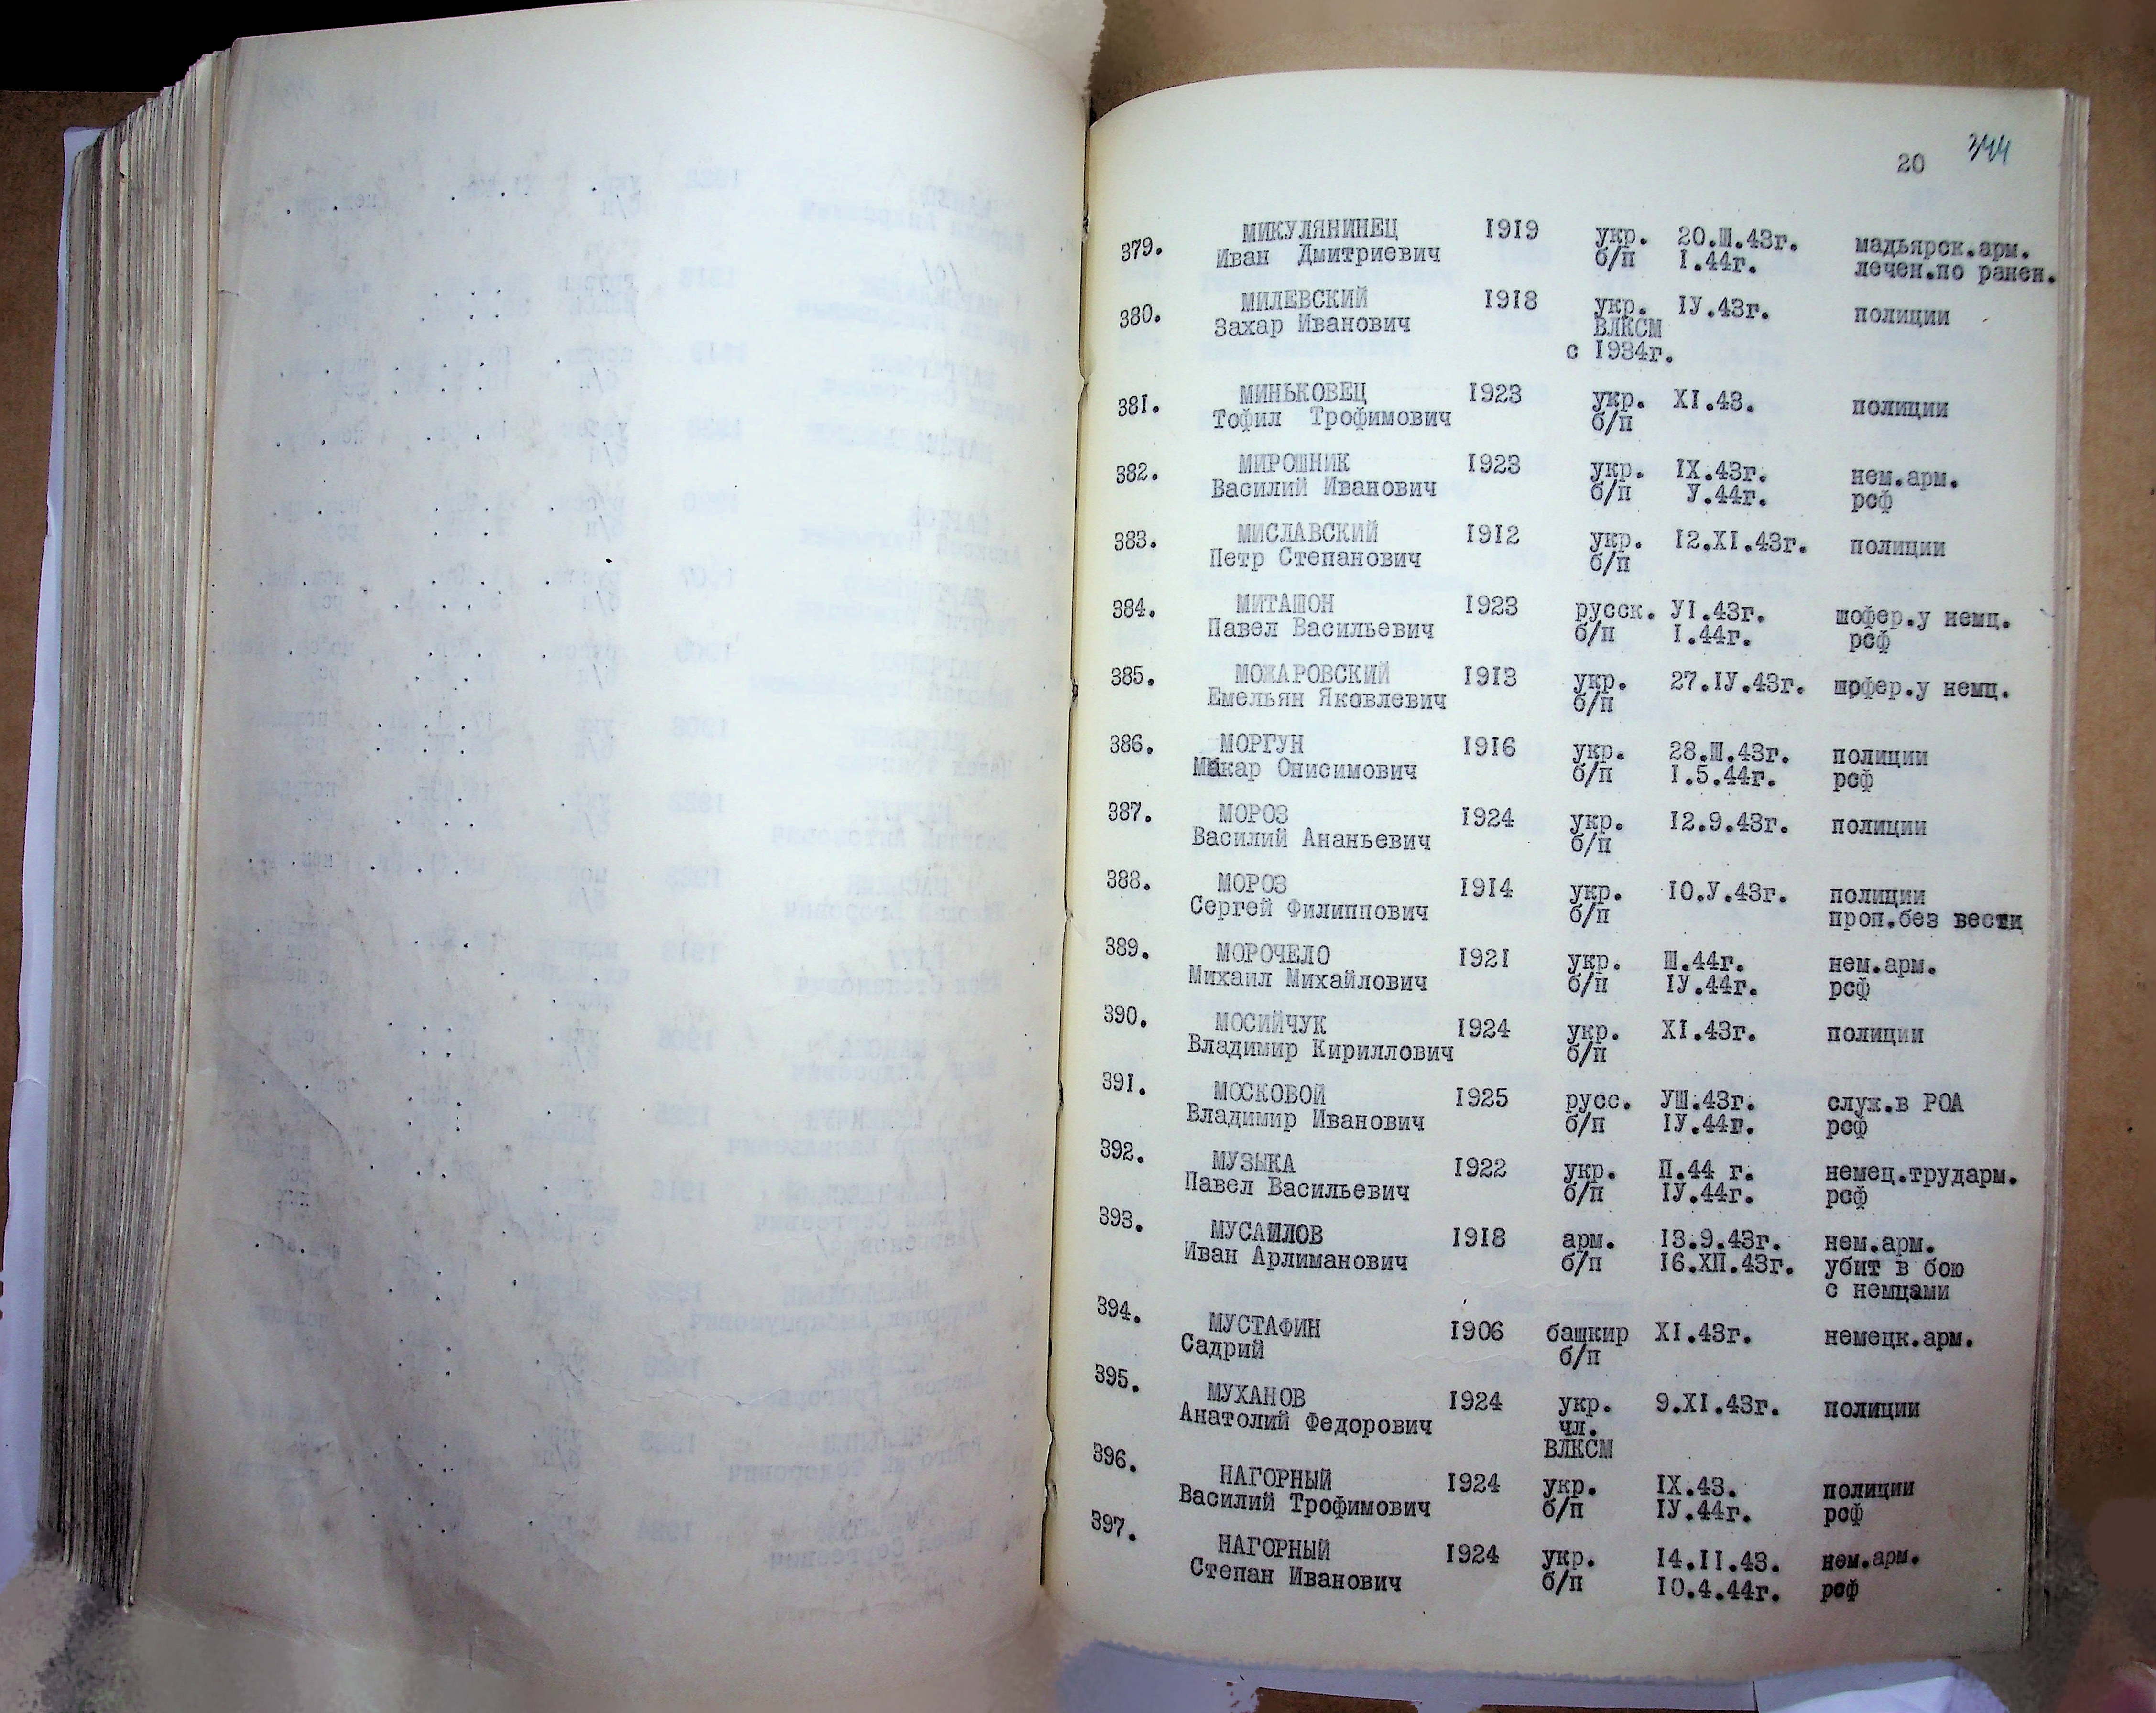 20 344
379. МИКУЛЯНИНЕЦ 1919 укр. 20.Ш.43г. мадьярск.арм.
Иван Дмитриевич б/п I.44г. лечен.по ранен.
380. МИЛЕВСКИЙ 1918 укр. IУ.43г. полиции
Захар Иванович ВЛКСМ
с 1934г.
381. МИНЬКОВЕЦ 1923 укр. XI.43. полиции
Тофил Трофимович б/п
382. МИРОШНИК 1923 укр. IX.43г. нем.арм.
Василий Иванович б/п У.44г. рсф
383. МИСЛАВСКИЙ 1912 укр. 12.XI.43г. полиции
Петр Степанович б/п
384. МИТАШОН 1923 русск. УI.43г. шофер.у немц.
Павел Васильевич б/п I.44г. рсф
385. МОЖАРОВСКИЙ 1913 укр. 27.IУ.43г. шофер.у немц.
Емельян Яковлевич б/п
386. МОРГУН 1916 укр. 28.Ш.43г. полиции
Макар Онисимович б/п I.5.44г. рсф
387. МОРОЗ 1924 укр. 12.9.43г. полиции
Василий Ананьевич б/п
388. МОРОЗ 1914 укр. 10.У.43г. полиции
Сергей Филиппович б/п проп.без вести
389. МОРОЧЕЛО 1921 укр. Ш.44г. нем.арм.
Михаил Михайлович б/п IУ.44г. рсф
390. МОСИЙЧУК 1924 укр. XI.43г. полиции
Владимир Кириллович б/п
391. МОСКОВОЙ 1925 русс. УШ.43г. служ.в РОА
Владимир Иванович б/п IУ.44г. рсф
392. МУЗЫКА 1922 укр. П.44 г. немец.трударм.
Павел Васильевич б/п IУ.44г. рсф
393. МУСАИЛОВ 1918 арм. 13.9.43г. нем.арм.
Иван Арлиманович б/п 16.ХП.43г. убит в бою
с немцами
394. МУСТАФИН 1906 башкир XI.43г. немецк.арм.
Садрий б/п
395. МУХАНОВ 1924 укр. 9.XI.43г. полиции
Анатолий Федорович чл.
ВЛКСМ
396. НАГОРНЫЙ 1924 укр. IX.43. полиции
Василий Трофимович б/п IУ.44г. рсф
397. НАГОРНЫЙ 1924 укр. 14.II.43. нем.арм.
Степан Иванович б/п 10.4.44г. рсф